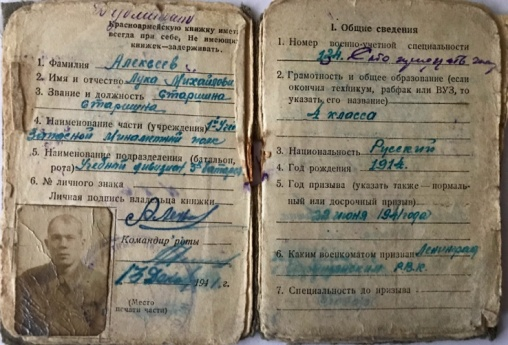 Красноармейскую книжку иметь
всегда при себе. Не имеющих
книжек—задерживать.
1. Фамилия Алексеев
2. Имя и отчество Лука Михайлович
3. Звание и должность старшина
старшина
4. Наименование части (учреждения)
Запасной минометный полк
5. Наименование подразделения (батальон,
рота) Учебной дивизион
6. № личного знака
Личная подпись владельца книжки
Командир роты
194 г.
(Место
печати части)
I. Общие сведения
1. Номер военно-учетной специальности
134.
2. Грамотность и общее образование (если
окончил техникум, рабфак или ВУЗ, то
указать его название)
4 класса
3. Национальность Русский
4. Год рождения 1914.
5. Год призыва (указать также — нормаль-
ный или досрочный призыв)
июня 1941 года
6. Каким военкоматом призван Ленинград
РВК.
7. Специальность до призыва